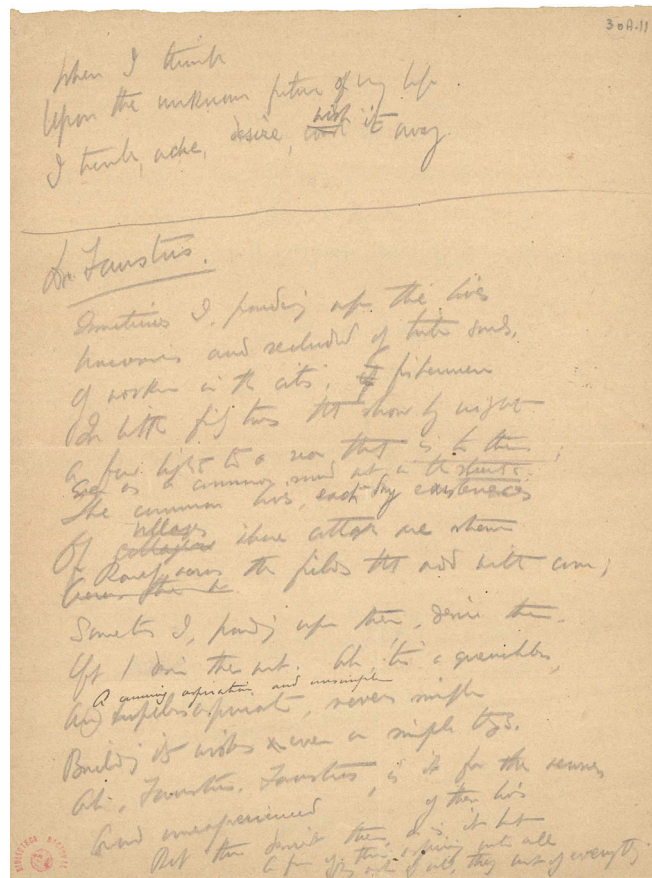 30A-11
When I think
Upon the unknown future of my life
I think, ache, desire, wish it away
Dr. Faustus.
Sometimes I, pondering upon the lives
Unconscious and secluded of little souls,
Of workers in the city, of fishermen
In little fishing towns that show by night
A few lights to a sea that is to them
Such as a common road out in the streets;
The common lives, each-day existences
Of villages whose cottages are strewn
Ranef across the fields that nod with corn;
Sometimes I, pondering upon them, desire them.
Yet I desire them not. Ah, 'tis a
A cunning aspiration and unsimple
And aspiration, never simple
Building its wishes even on simple things.
Ah, Faustus, Faustus, is it for the
And unexperienced of their lives
But then desirest them, or is it but
out of all, they out of everything
BIBLIOTECA NACIONAL